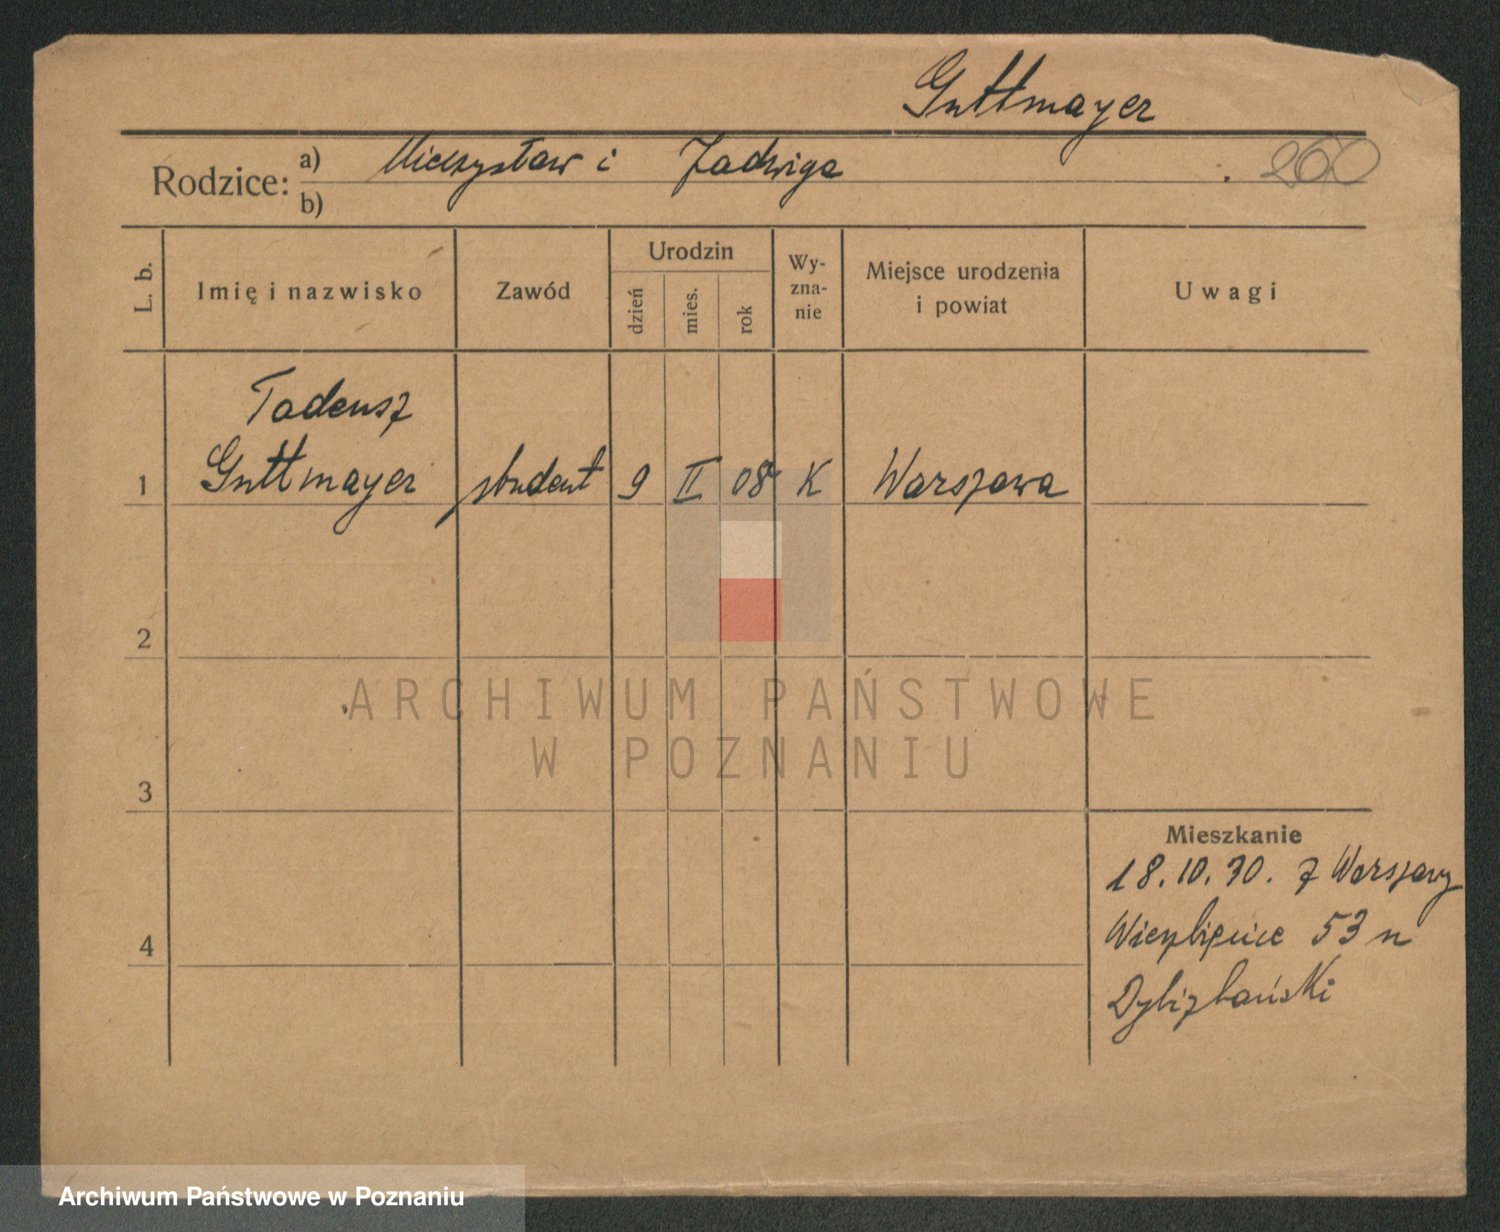 Guttmayer
Rodzice: a) Mieczysław i Jadwiga . 260
b)
L. b. Imię i nazwisko Zawód Urodzin dzień mies. rok Wy-zna-nie Miejsce urodzenia i powiat Uwagi
Tadeusz
1 Guttmayer student 9 II 08 K Warszawa
2
3
4
Mieszkanie
18.10.30. z Warszawy
53 n
Dybizbański
ARCHIWUM PAŃSTWOWE
W POZNANIU
Archiwum Państwowe w Poznaniu